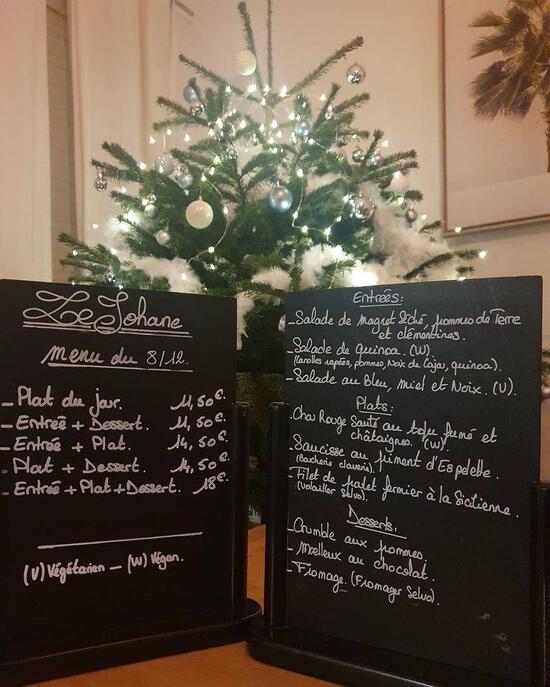 Le Johane
menu du 8/12.
- Plat du jour. 11,50€.
- Entrée + Dessert. 11,50€.
- Entrée + Plat. 14,50€.
- Plat + Dessert. 14,50€.
- Entrée + Plat + Dessert. 18€.
(V) Végétarien - (W) Végan.
Entrées:
- Salade de magret séché, pommes de Terre
et clémentines.
- Salade de quinoa. (W).
(carottes rapées, pommes, Noix de Cajou, quinoa).
- Salade au Bleu, miel et Noix. (V).
Plats:
- Chou Rouge Sauté au tofu fumé et
châtaignes. (W).
- Saucisse au piment d'Espelette.
(Boucherie claverie).
- Filet de poulet fermier à la Sicilienne.
(Volailler Selvo).
Desserts.
- Crumble aux pommes.
- Moelleux au chocolat.
- Fromage. (Fromager Selvo).